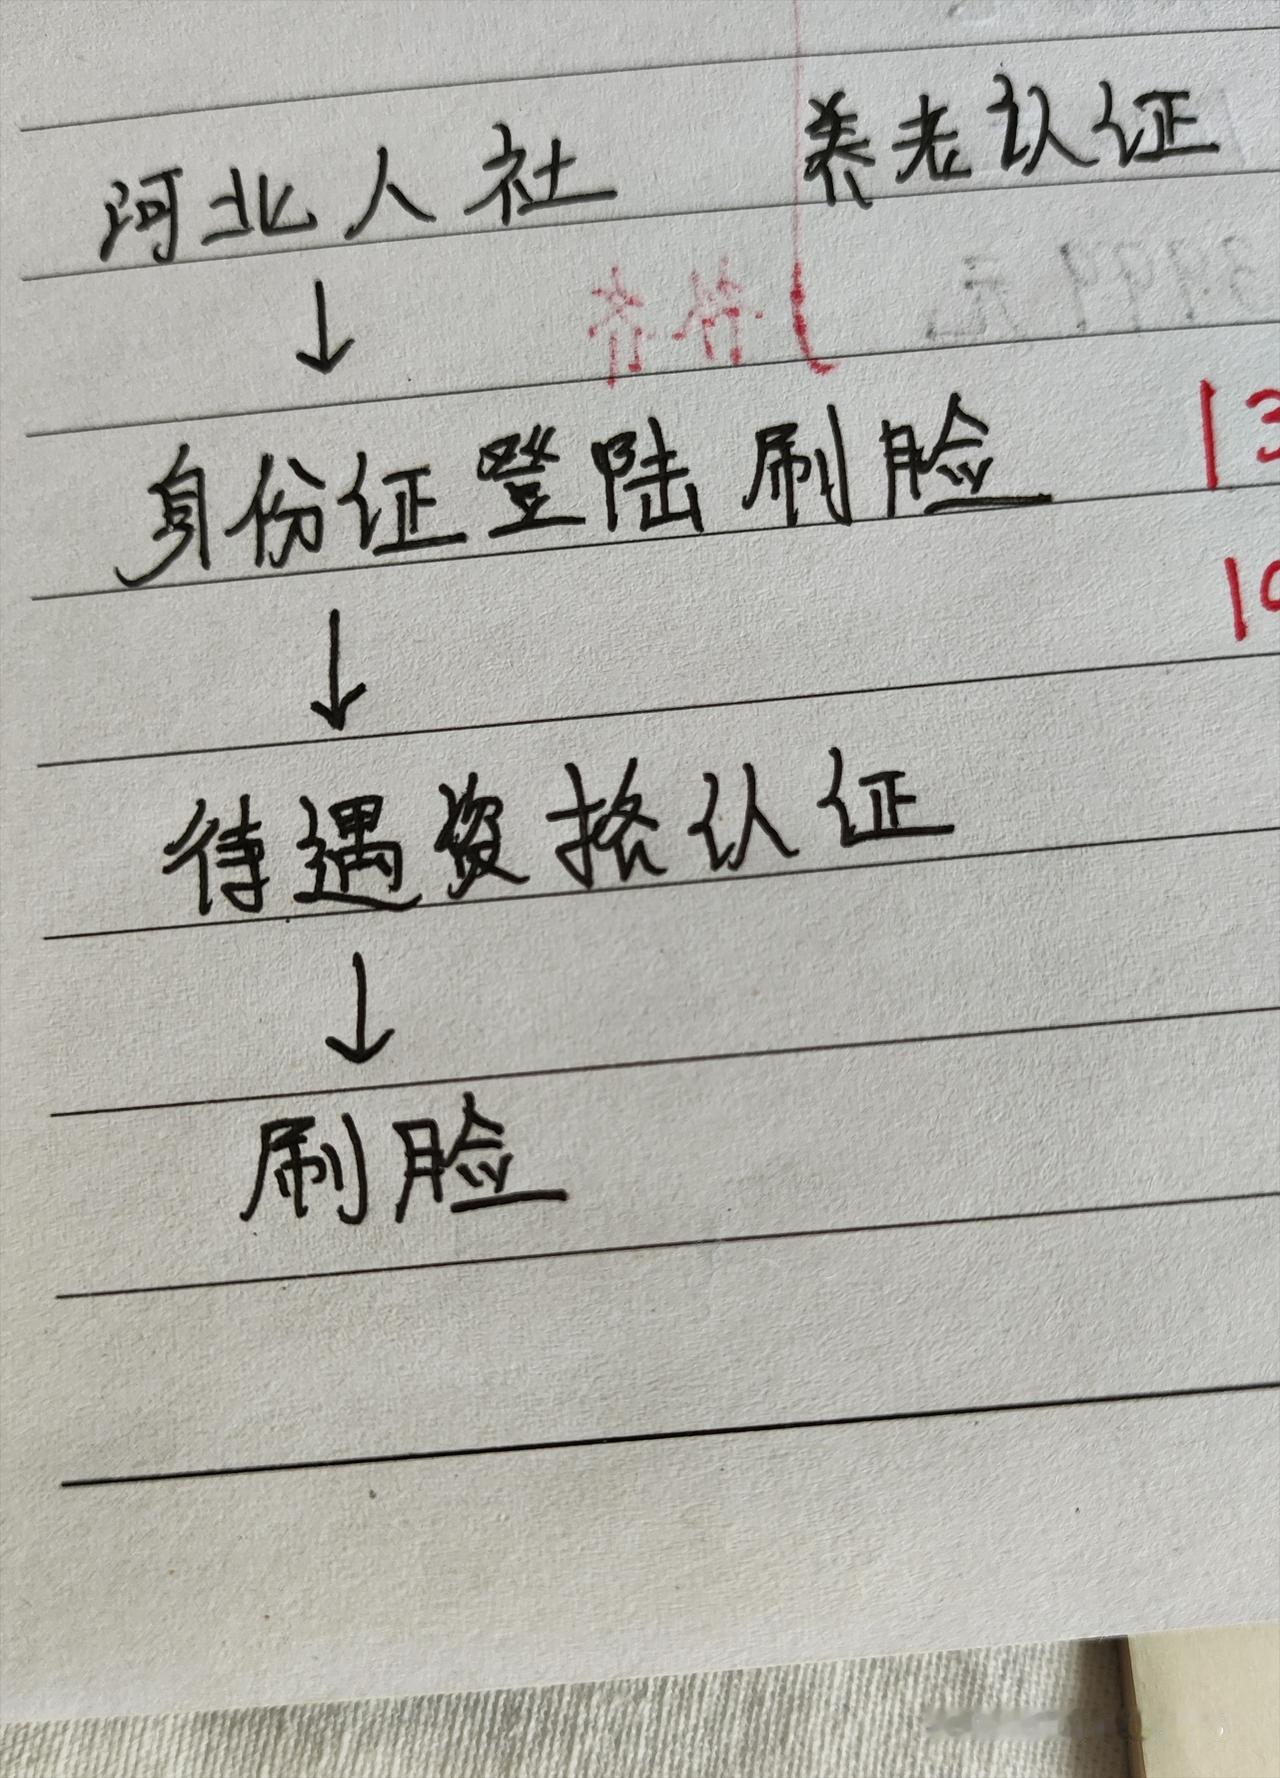 河北人社 养老认证
↓
身份证登陆刷脸 13
↓
待遇资格认证
↓
刷脸